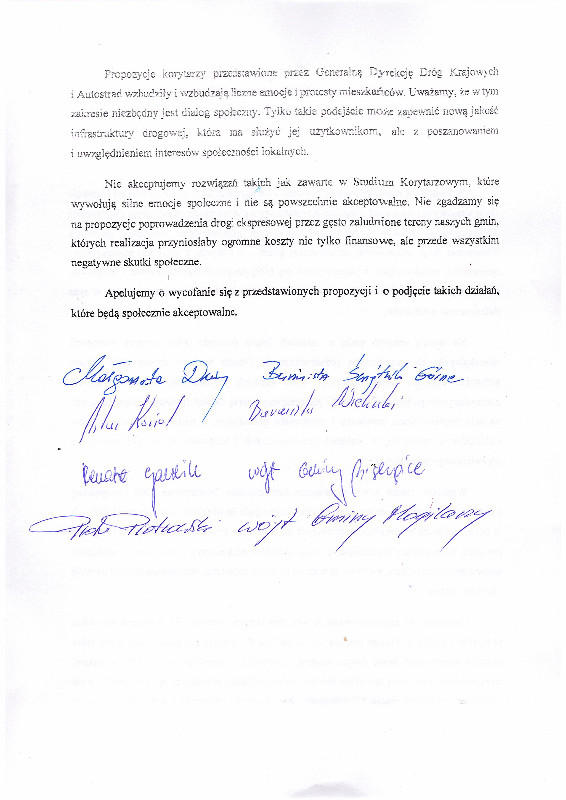 Propozycje korytarzy przedstawione przez Generalną Dyrekcję Dróg Krajowych
i Autostrad wzbudziły i wzbudzają liczne emocje i protesty mieszkańców. Uważamy, że w tym
zakresie niezbędny jest dialog społeczny. Tylko takie podejście może zapewnić nową jakość
infrastruktury drogowej, która ma służyć jej użytkownikom, ale z poszanowaniem
i uwzględnieniem interesów społeczności lokalnych.
Nie akceptujemy rozwiązań takich jak zawarte w Studium Korytarzowym, które
wywołują silne emocje społeczne i nie są powszechnie akceptowalne. Nie zgadzamy się
na propozycje poprowadzenia drogi ekspresowej przez gęsto zaludnione tereny naszych gmin,
których realizacja przyniosłaby ogromne koszty nie tylko finansowe, ale przede wszystkim
negatywne skutki społeczne.
Apelujemy o wycofanie się z przedstawionych propozycji i o podjęcie takich działań,
które będą społecznie akceptowalne.
Małgorzata Burmistrz Świątnik Górne
Burmistrz Wieliczki
Renata wójt Gminy
Piotr Piotrowski wójt Gminy Mogilany